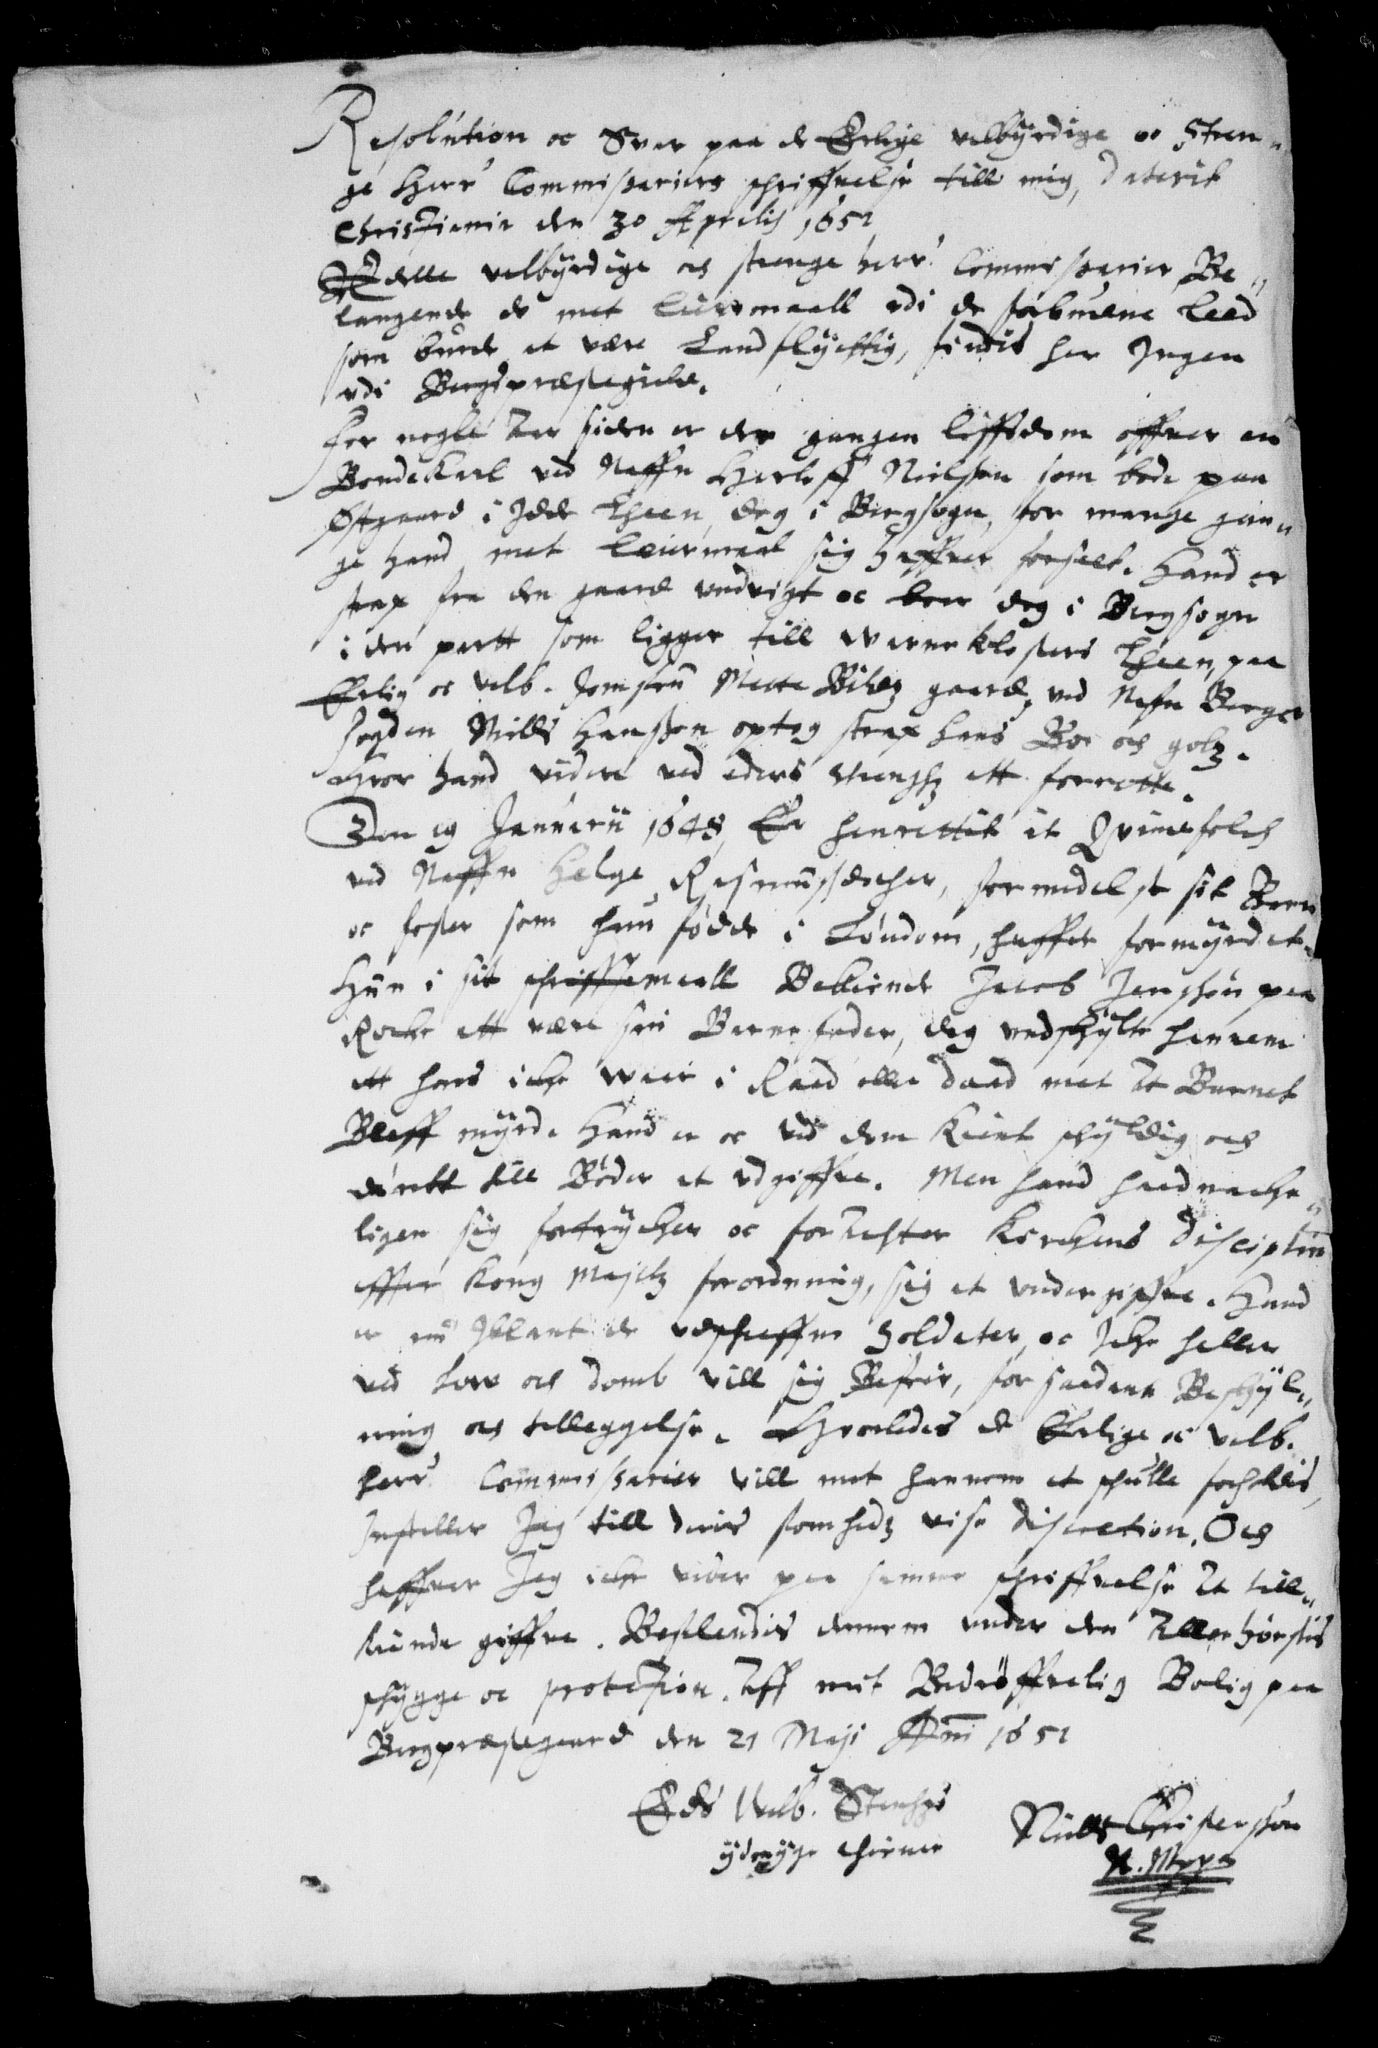 Resolution oc Svar paa de Erlige velbyrdige oc Stren„
ge Herr Commissariers schriffuelse till mig, daterit
Christiania den 30 Aprilis 1651
Edelle velbyrdige och strenge herr Commissarier, Be„
langende de met Leiermaall udi de forbudene Leed
som burde at være Landflychtig, findis her Ingen
udi Bergs præstegield.
For nogle Aar siden er der gangen liffsdom offuer en
Bondekarl ved Naffn Herloff Nielsen som bode paa
Østgaard i Idde Theen, dog i Bergsogn, for mange gan„
ge hand met Leiermaal sig haffuer forseet. Hand er
strax fra den gaard undvigt oc boer dog i Bergsogn
i den partt som ligger till Werne Klosters Theen, paa
Erlig oc velb. Jomfru Mette gaard, ved Nafn Berger
fogden Nills Hanssen optog strax hans Boe och gotz.
Hvor hand videre ved eders ett forrette.
Den 19 Januarii 1648 Er henrettit it Qvindfolch
ved Naffn Helge Rasmussdother, formedelst sit Barn
oc foster som hun fødde i Løndom, haffer formyrdet.
Hun i sit schrifftemaall Bekiende Jacob Jenssøn paa
Rocke ett være sin Barnefader, dog undskylte hannem
ett hans icke waar i Raad eller daad met At Barnet
Bleff myrd. Hand er oc ved dem Kient schyldig och
dømbt till Bøder at udgiffue. Men hand haardnache„
ligen sig fortrycker oc foracter Kirchens disciplin
effter Kong Majestz forordning, sig at undergiffue. Hand
er nu Iblant de udschreffne Soldater, oc Icke heller
ved Low och domb vill sig Befrie, for saadan Beskyl„
ning och tilleggelse. Hvorledes de Erlige oc velb.
herr Commissarier vill met hannem at schulle forholdis,
Instiller Jeg till deris fromhedz vise discretion. Och
haffuer Jeg icke videre paa samme schriffuelse At till„
kiende giffue. Befalendis dennem under den Allerhøiestis
schygge oc protection. Aff mit Bedrøffuelig Bolig paa
Bergpræstegaard den 21 Maji Anni 1651
Eds Velb. Strenghs
ydmyge thiener
Niells Christenssøn